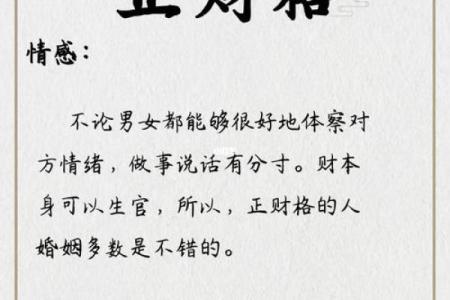 正财格
情感：
不论男女都能够很好地体察对
方情绪，做事说话有分寸。财本
身可以生官，所以，正财格的人
婚姻多数是不错的。